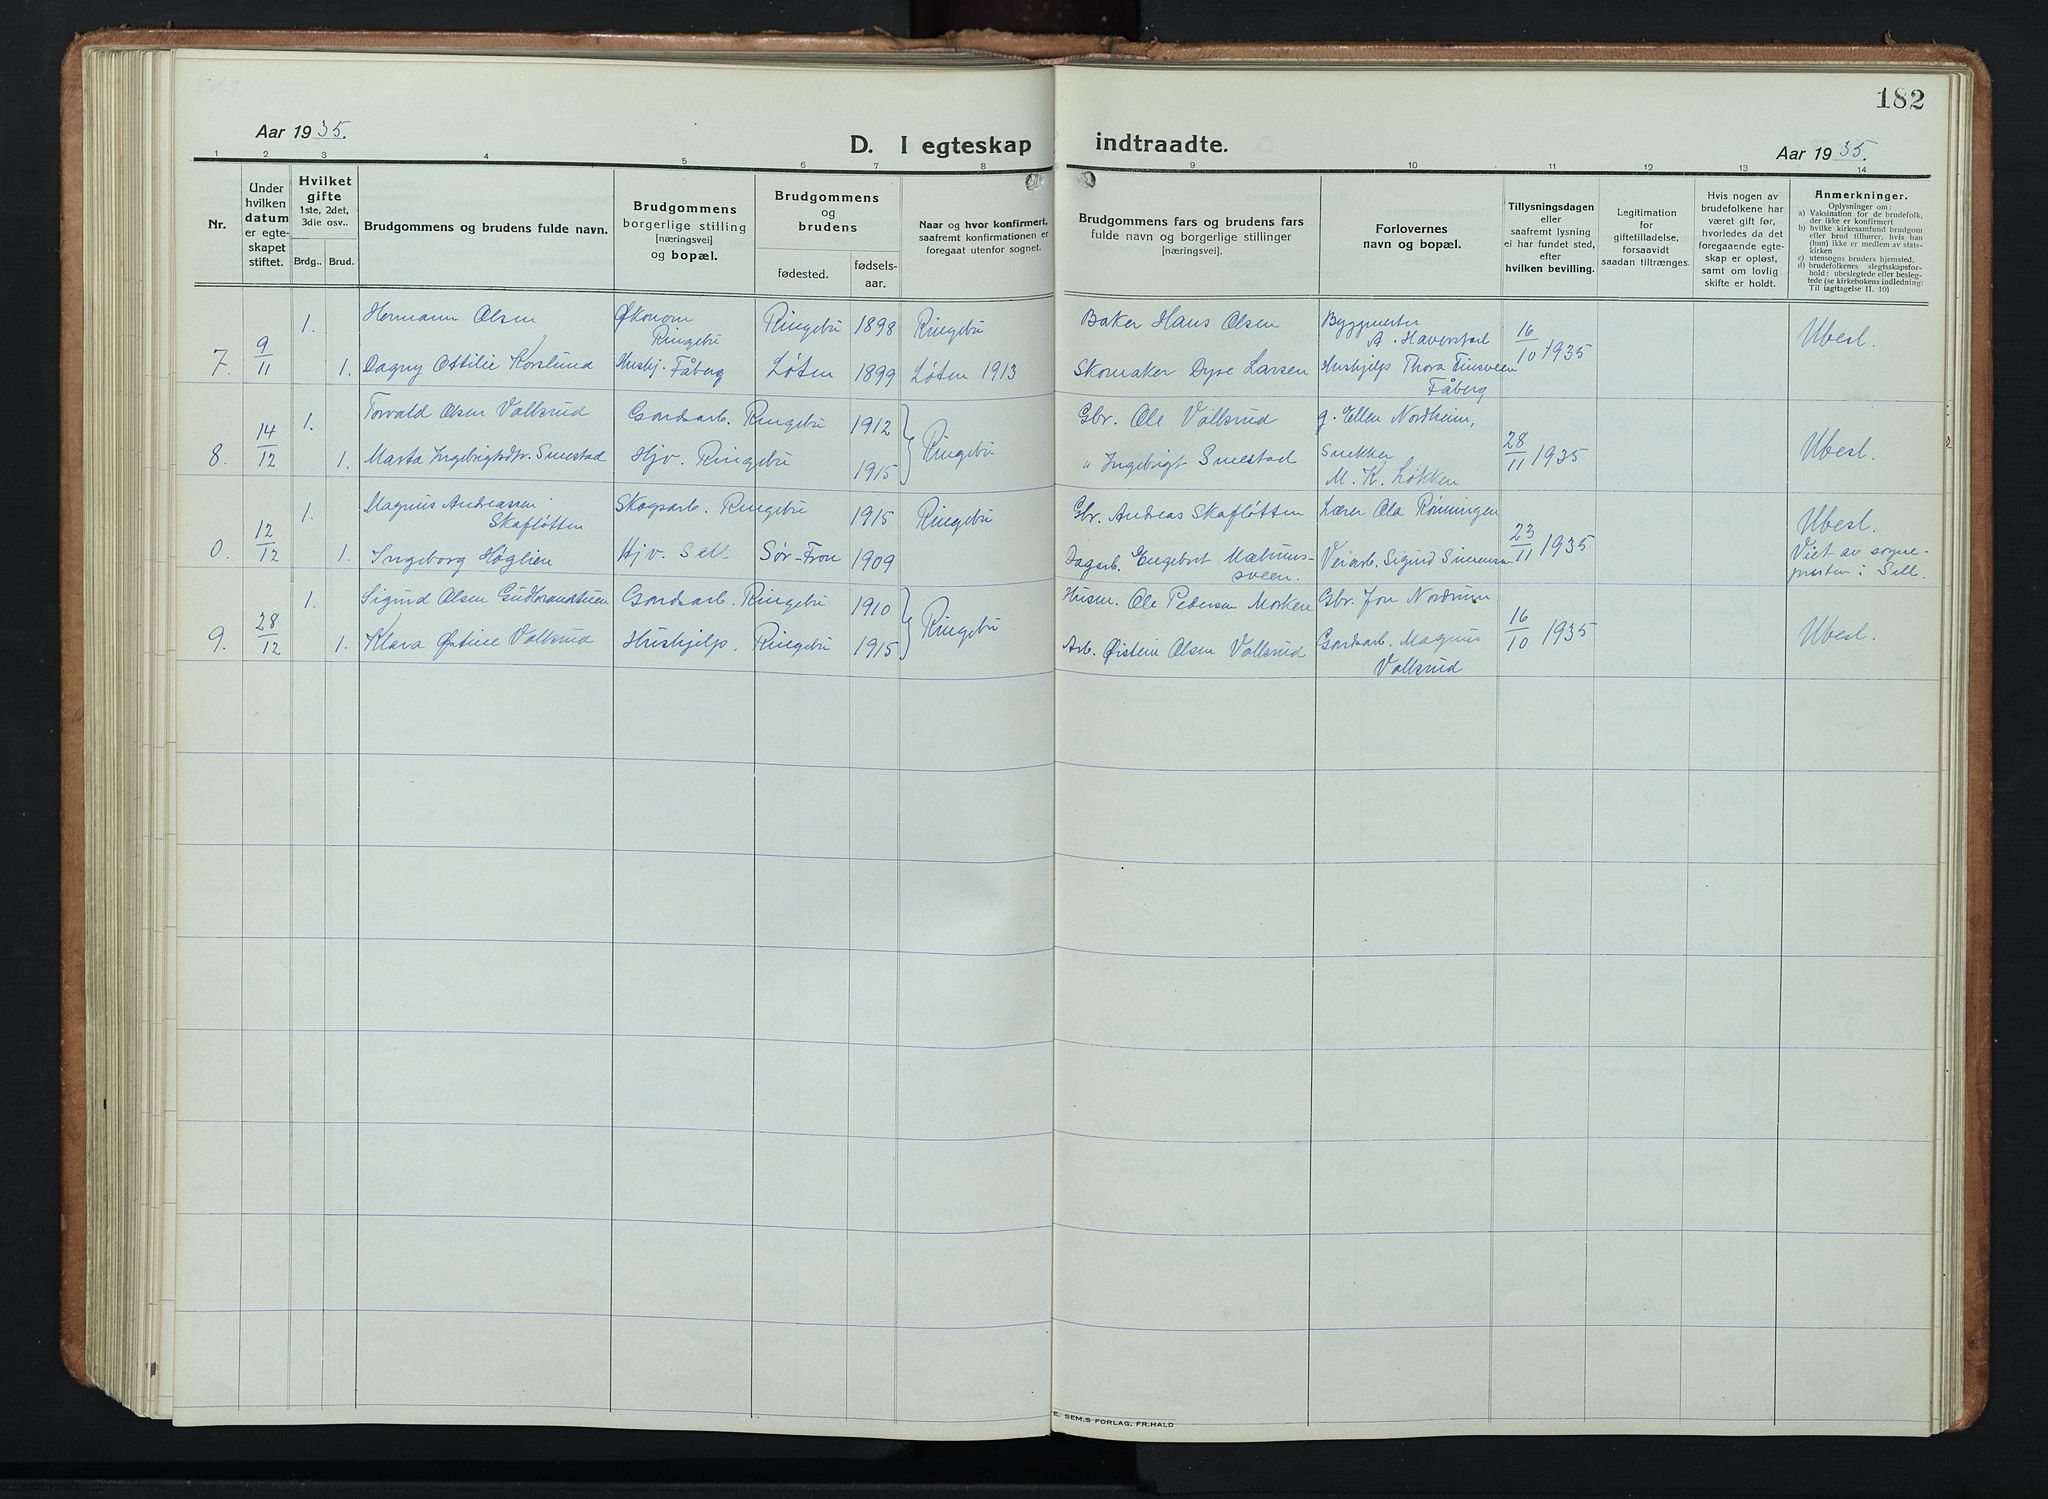 182
Aar 1935.
D. I egteskap indtraadte.
Aar 1935.
1 2 3 4 5 6 7 8 9 10 11 12 13 14
Nr.
Under hvilken datum er egteskapet stiftet.
Hvilket gifte
1ste, 2det, 3die osv..
Brdg.. Brud.
Brudgommens og brudens fulde navn.
Brudgommens borgerlige stilling [næringsvei] og bopæl.
Brudgommens og brudens
fødested. fødsels-aar.
Naar og hvor konfirmert, saafremt konfirmationen er foregaat utenfor sognet.
Brudgommens fars og brudens fars fulde navn og borgerlige stillinger [næringsvei].
Forlovernes navn og bopæl.
Tillysningsdagen eller saafremt lysning ei har fundet sted, efter hvilken bevilling.
Legitimation for giftetilladelse, forsaavidt saadan tiltrænges.
Hvis nogen av brudefolkene har været gift før, hvorledes da det foregaaende egteskap er opløst, samt om lovlig skifte er holdt.
Anmerkninger.
Oplysninger om:
a) Vaksination for de brudefolk, der ikke er konfirmert
b) hvilke kirkesamfund brudgom eller brud tilhører, hvis han (hun) ikke er medlem av statskirken
c) utensogns bruders hjemsted,
d) brudefolkenes slegtsskapsforhold: ubeslegtede eller beslegtede (se kirkebokens indledning: Til iagttagelse II. 10)
1. Hermann Olsen Økonom Ringebu Ringebu 1898 Ringebu Baker Hans Olsen Byggmester A. Haverstad 16/10 1935 Ubesl.
7. 9/11 1. Dagny Ottilie Korslund Hushj. Fåberg Løten 1899 Løten 1913 Skomaker Dyre Larsen Hushjelp Thora Finsveen Fåberg
1. Torvald Olsen Vallsrud Gardsarb. Ringebu 1912 Ringebu Gbr. Ole Vallsrud g. Ellen Nordheim, 28/11 1935 Ubesl.
8. 14/12 1. Marta Ingebrigtsdtr. Smestad Hjv. Ringebu 1915 " Ingebrigt Smestad Snekker M. K. Løkken
1. Magnus Andreassen Skafløtten Skogsarb. Ringebu 1915 Ringebu Gbr. Andreas Skafløtten Lærer Ola Rønningen 23/11 1935 Ubesl.
0. 12/12 1. Ingeborg Høglien Hjv. Sell Sør-Fron 1909 Dagarb. Engebret Mælumssveen. Veiarb. Sigurd Simensen Viet av sognepresten i Sell.
1. Sigurd Olsen Gudbrandstuen Gardsarb. Ringebu 1910 Ringebu Husm. Ole Pedersen Morken Gbr. Jon Nordrum 16/10 1935 Ubesl.
9. 28/12 1. Klara Østine Vallsrud Hushjelp. Ringebu 1915 Arb. Øistein Olsen Vallsrud Gardsarb. Magnus Vallsrud
E. SEM,S FORLAG, FR.HALD